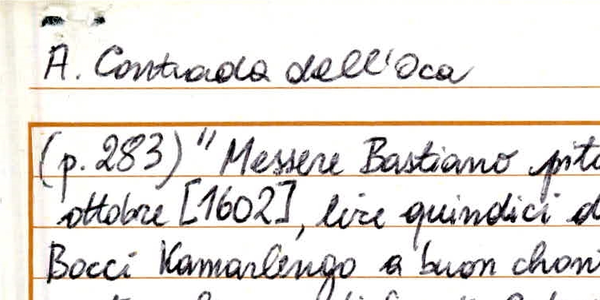 A. Contrada dell'Oca
(p. 283) "Messere Bastiano pito
ottobre [1602], lire quindici d
Bocci Kamarlengo a buon choni